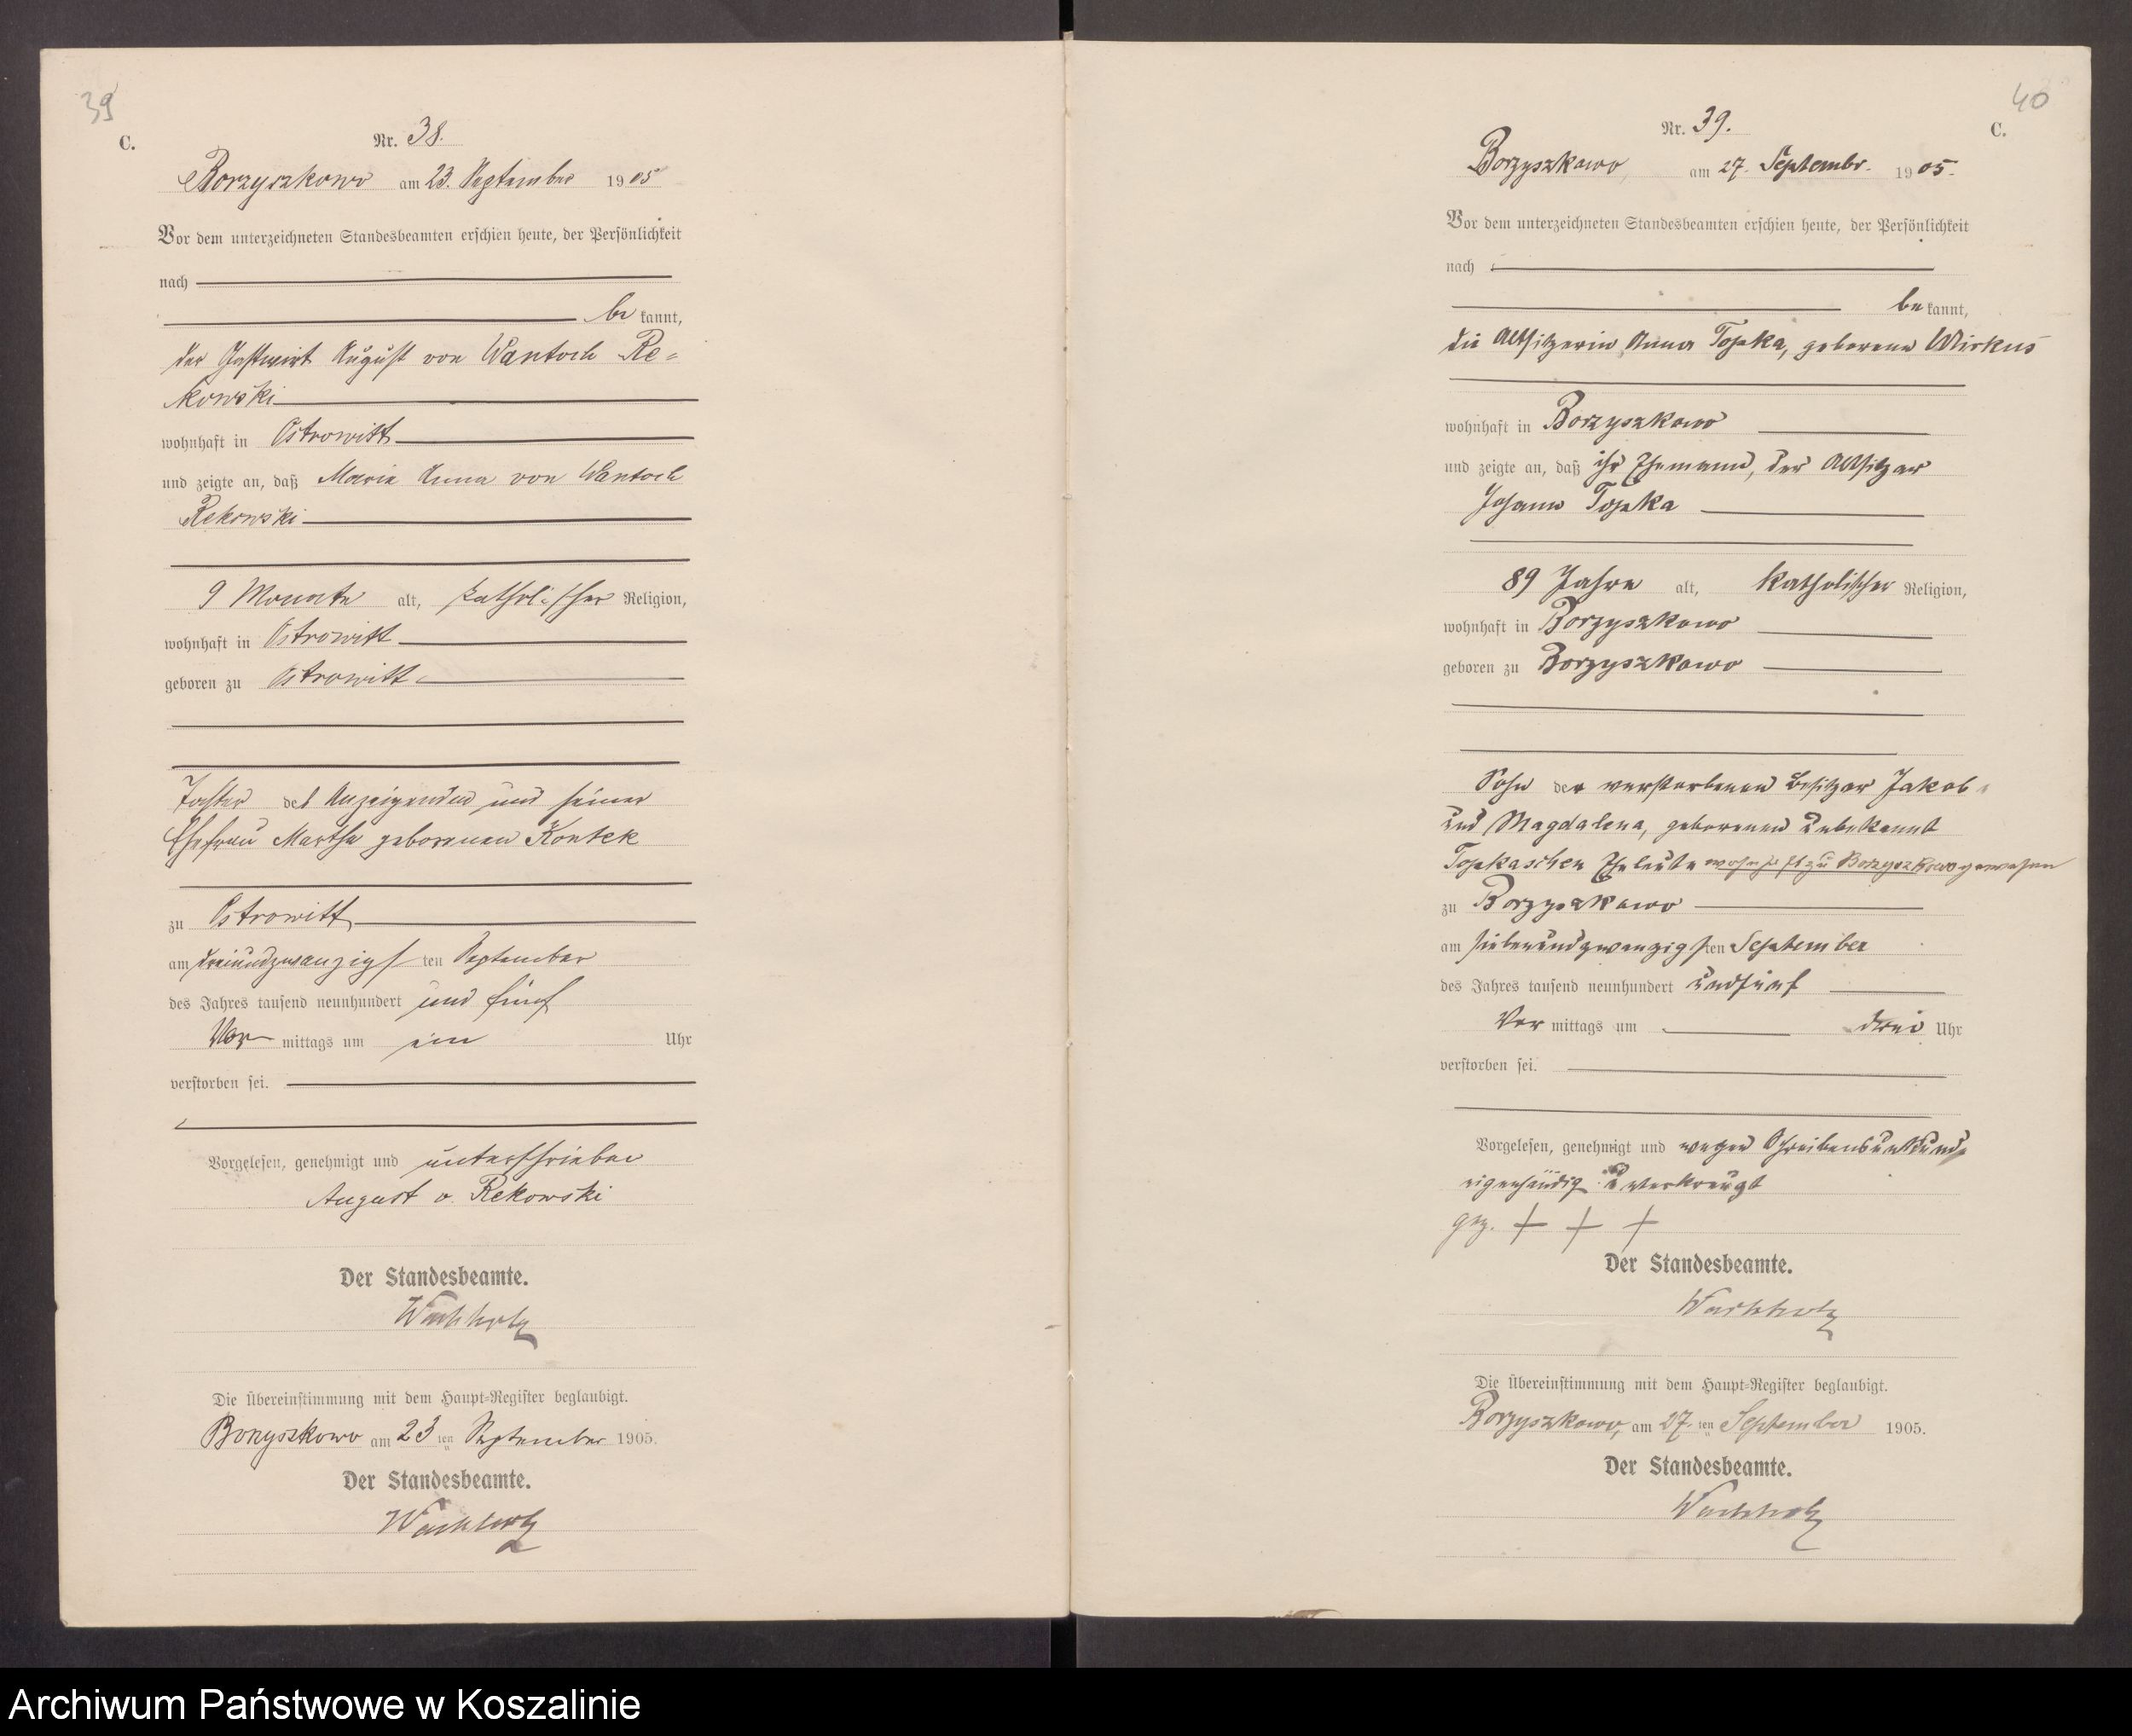 39
C.
Nr. 38.
Borzyszkowo am 23. September 1905
Vor dem unterzeichneten Standesbeamten erschien heute, der Persönlichkeit
nach
be kannt,
der Gastwirt August von Wantoch Re=
kowski
wohnhaft in Ostrowitt
und zeigte an, daß Maria Anna von Wantoch
Rekowski
9 Monate alt, katholischer Religion,
wohnhaft in Ostrowitt
geboren zu Ostrowitt
Tochter des Anzeigenden und seiner
Ehefrau Martha geborenen Kontek
zu Ostrowitt
am dreiundzwanzigsten September
des Jahres tausend neunhundert und fünf
Vor mittags um ein Uhr
verstorben sei.
Vorgelesen, genehmigt und unterschrieben
August v. Rekowski
Der Standesbeamte.
Wachholz
Die Übereinstimmung mit dem Haupt=Register beglaubigt.
Borzyszkowo am 23 ten September 1905.
Der Standesbeamte.
Wachholz
40
C.
Nr. 39.
Borzyszkowo, am 27. Septembr. 1905.
Vor dem unterzeichneten Standesbeamten erschien heute, der Persönlichkeit
nach
be kannt,
die Altsitzerin Anna Topka, geborene Wirkus
wohnhaft in Borzyszkowo
und zeigte an, daß ihr Ehemann, der Altsitzer
Johann Topka
89 Jahre alt, katholischer Religion,
wohnhaft in Borzyszkowo
geboren zu Borzyszkowo
Sohn der verstorbenen Besitzer Jakob
und Magdalena, geborenen unbekannt
Topkaschen Eheleute zu Borzyszkowo gewesen
zu Borzyszkowo
am siebenundzwanzigsten September
des Jahres tausend neunhundert undfünf
Vor mittags um drei Uhr
verstorben sei.
Vorgelesen, genehmigt und wegen Schreibensunkunde
eigenhändig unterkreuzt
gez. + + +
Der Standesbeamte.
Wachholz
Die Übereinstimmung mit dem Haupt=Register beglaubigt.
Borzyszkowo, am 27. ten September 1905.
Der Standesbeamte.
Wachholz
Archiwum Państwowe w Koszalinie